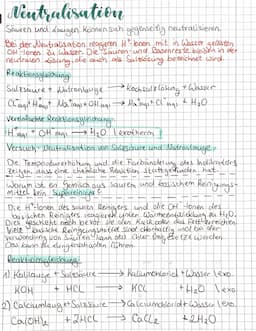 Neutralisation
Säuren und Laugen können sich gegenseitig neutralisieren.
Bei der Neutralisation reagieren H⁺-Ionen mit in Wasser gelösten
OH⁻-Ionen zu Wasser. Die Säuren- und Basenreste bilden in der
neutralen Lösung, die auch als Salzlösung bezeichnet wird.
Reaktionsgleichung:
Salzsäure + Natronlauge → Kochsalzlösung + Wasser
Cl⁻aq + H⁺aq + Na⁺aq + OH⁻aq → Na⁺aq + Cl⁻aq + H₂O
Vereinfachte Reaktionsgleichung:
H⁺aq + OH⁻aq → H₂O \ exotherm
Versuch - Neutralisation von Salzsäure und Natronlauge
Die Temperaturerhöhung und die Farbänderung des Indikators
zeigen, dass eine chemische Reaktion stattgefunden hat.
Warum ist ein Gemisch aus sauren und basischem Reinigungs-
mittel kein Superreiniger?
Die H⁺-Ionen des sauren Reinigers und die OH⁻-Ionen des
basischen Reinigers reagieren unter Wärmeentwicklung zu H₂O.
Viele basische Reinigungsmittel sind
Verwendung von Säuren kann
Das kann zu
Reaktionsgleichung:
1) Kalilauge + Salzsäure → Kaliumchlorid + Wasser \ exo.
KOH + HCl → KCl + H₂O \ exo
2) Calciumlauge + Salzsäure → Calciumchlorid + Wasser \ exo.
Ca(OH)₂ + 2HCl → CaCl₂ + 2H₂O